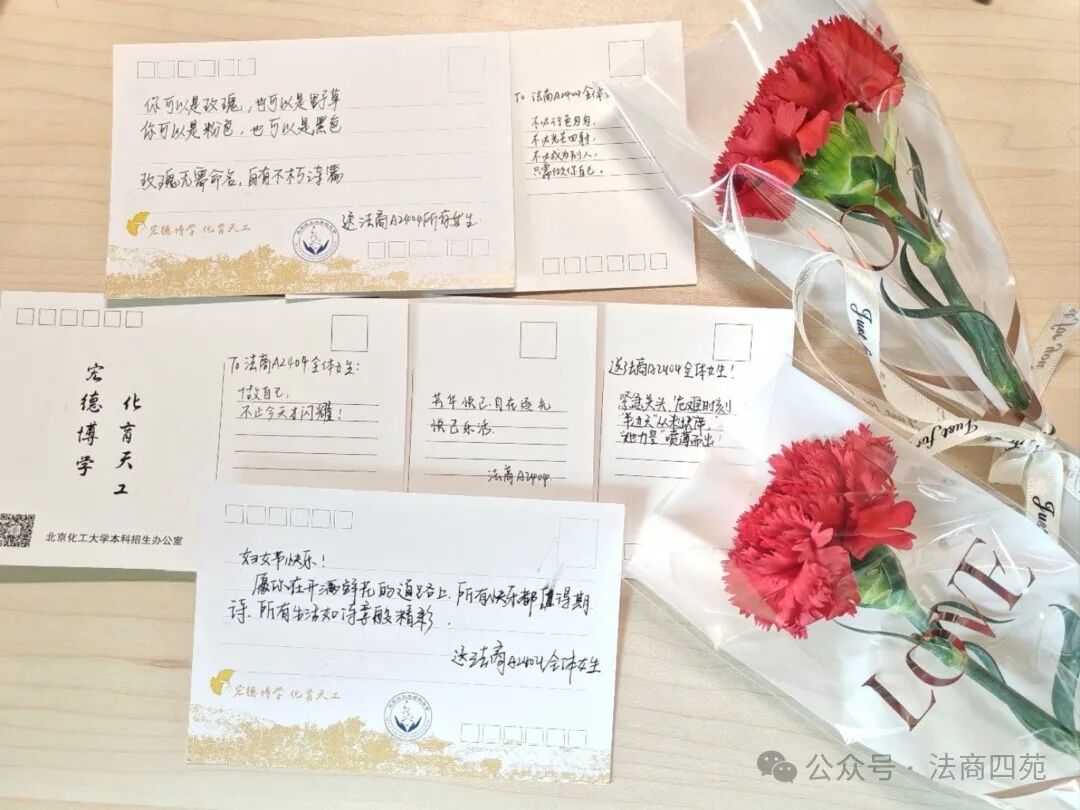 你可以是玫瑰，也可以是野草
你可以是粉色，也可以是黑色
玫瑰无需命名，自有不朽诗篇
送法商A2404所有女生
宏德博学 化育天工
To 法商A2404全体
不必行色匆匆，
不必光芒四射，
不必成为别人，
只需做你自己。
宏德博学
化育天工
北京化工大学本科招生办公室
To 法商A2404全体女生：
做自己，
不止今天才闪耀！
快己自在逐光
快己乐活
法商A2404
送法商A2404全体女生！
紧急关头，危难时刻
"半边天"从未缺阵
"她力量"喷薄而出！
妇女节快乐！
愿你在开满鲜花的道路上，所有快乐都值得期
诗，所有生活如诗章般精彩．
送法商A2404全体女生
宏德博学 化育天工
Just for
Just for
LOVE
公众号·法商四苑